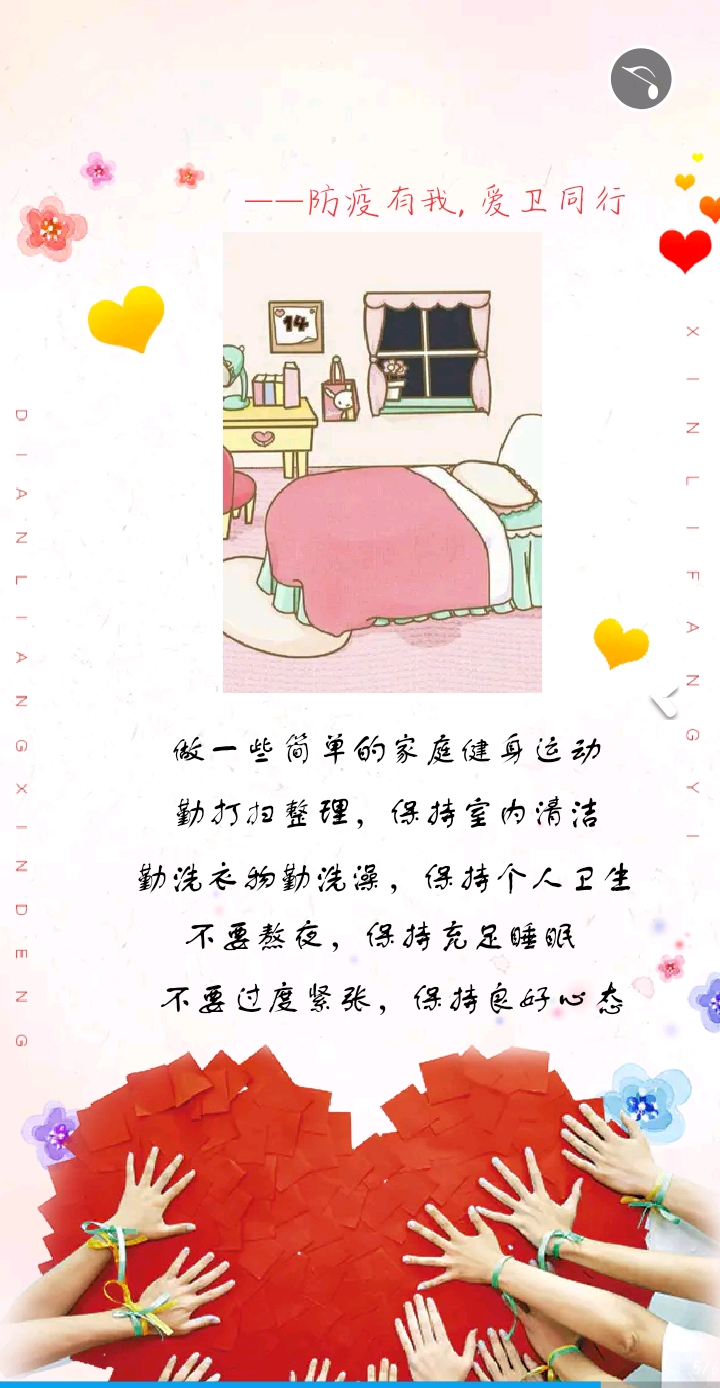 ——防疫有我,爱卫同行
14
DIANLIANGXINDENG
XINLIFANGYI
做一些简单的家庭健身运动
勤打扫整理，保持室内清洁
勤洗衣物勤洗澡，保持个人卫生
不要熬夜，保持充足睡眠
不要过度紧张，保持良好心态